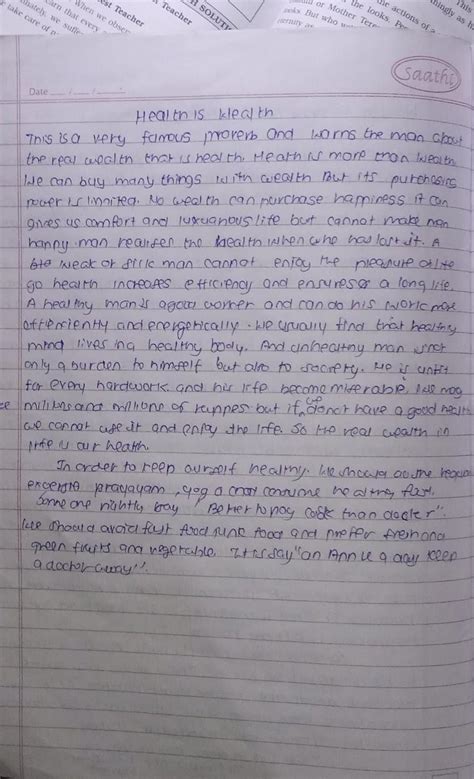 est Teacher
Teacher
H SOLUTI
When we obser
earn that every
nately, we suffe
take care of
the actions of a
the looks. Pe
or Mother Tere
But who w
ernity
This
thingly as
Saathi
Date
Health is Wealth
This is a very famous proverb and warns the man about
the real wealth that is health. Health is more than wealth
We can buy many things with wealth But its purchasing
power is limited. No wealth can purchase happiness it can
gives us comfort and luxurious life but cannot make man
happy. man realizes the health when who has lost it. A
weak or sick man cannot enjoy the pleasure of life
go health increases efficiency and ensures a long life.
A healthy man is a good worker and can do his work more
efficiently and energetically. We usually find that healthy
mind lives in a healthy body. And unhealthy man is not
only a burden to himself but also to society. He is unfit
for every hardwork and his life become miserable. We may
millions and millions of ruppes but if we donot have a good health
we cannot use it and enjoy the life. So the real wealth in
life is our health.
In order to keep ourself healthy. We should do the regular
prayayam, yog a and consume healthy food.
Some one rightly say Better to pay cook than docter".
We should avoid fast food junk food and prefer fresh and
green fruits and vegetable. It is say "an Apple a day keep
a doctor away".